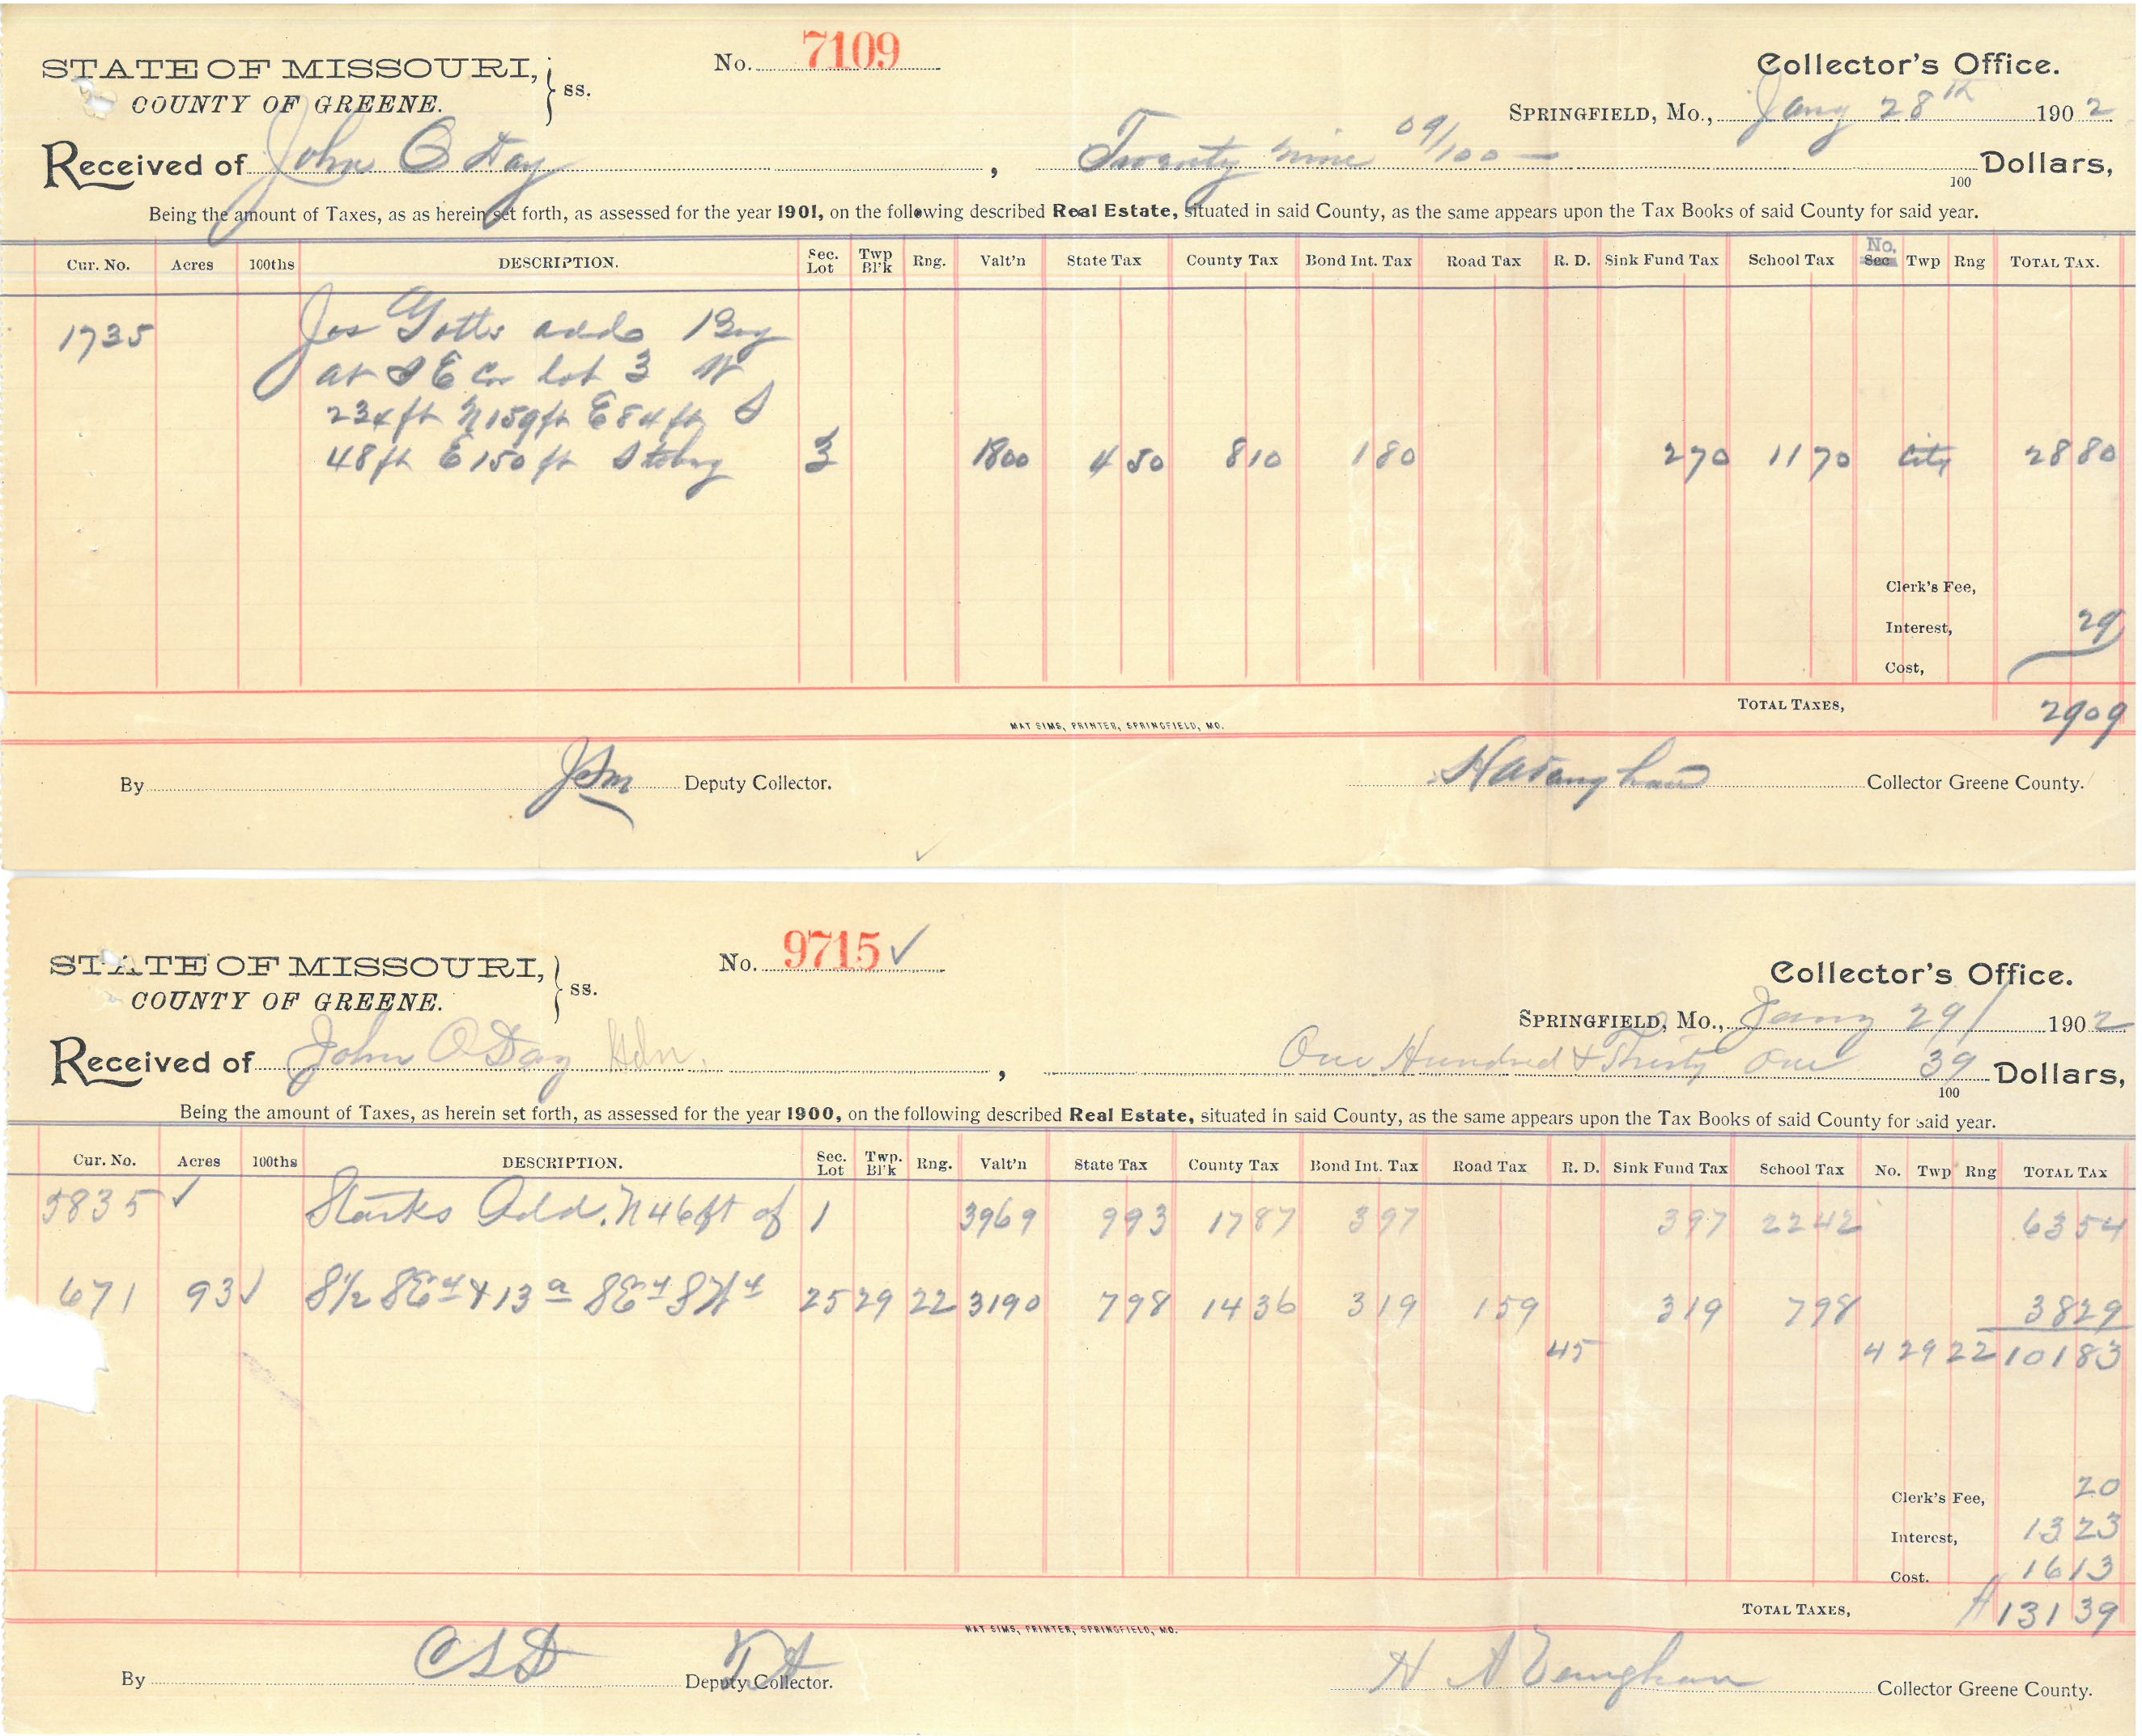 STATE OF MISSOURI, } ss. No. 7109 Collector's Office.
COUNTY OF GREENE. SPRINGFIELD, Mo., Jany 28th 1902
Received of John O Day, Twenty nine 09/100 — 100 Dollars,
Being the amount of Taxes, as as herein set forth, as assessed for the year 1901, on the following described Real Estate, situated in said County, as the same appears upon the Tax Books of said County for said year.
Cur. No. Acres 100ths DESCRIPTION. Sec. Lot Twp Bl'k Rng. Valt'n State Tax County Tax Bond Int. Tax Road Tax R. D. Sink Fund Tax School Tax No. Sec Twp Rng TOTAL TAX.
1735 Jos Gotts add Beg
at S E Cor lot 3 W
234 ft N 159 ft E 84 ft S
48 ft E 150 ft S to beg 3 1800 4 50 8 10 1 80 2 70 11 70 City 28 80
Clerk's Fee,
Interest, 29
Cost,
TOTAL TAXES, 29 09
MAT SIMS, PRINTER, SPRINGFIELD, MO.
By Deputy Collector. Collector Greene County.
STATE OF MISSOURI, } ss. No. 9715 ✓ Collector's Office.
COUNTY OF GREENE. SPRINGFIELD, Mo., Jany 29/ 1902
Received of John O Day, One Hundred & Thirty One 39 100 Dollars,
Being the amount of Taxes, as herein set forth, as assessed for the year 1900, on the following described Real Estate, situated in said County, as the same appears upon the Tax Books of said County for said year.
Cur. No. Acres 100ths DESCRIPTION. Sec. Lot Twp. Bl'k Rng. Valt'n State Tax County Tax Bond Int. Tax Road Tax R. D. Sink Fund Tax School Tax No. Twp Rng TOTAL TAX
5835 ✓ Starks Add. N 46 ft of 1 3969 9 93 17 87 3 97 3 97 22 42 63 54
671 93 ✓ S 1/2 SE 4 & 13 a SE 4 SW 4 25 29 22 3190 7 98 14 36 3 19 1 59 3 19 7 98 38 29
45 4 29 22 101 83
Clerk's Fee, 20
Interest, 13 23
Cost. 16 13
TOTAL TAXES, 131 39
MAT SIMS, PRINTER, SPRINGFIELD, MO.
By C S D Deputy Collector. H A Vaughan Collector Greene County.